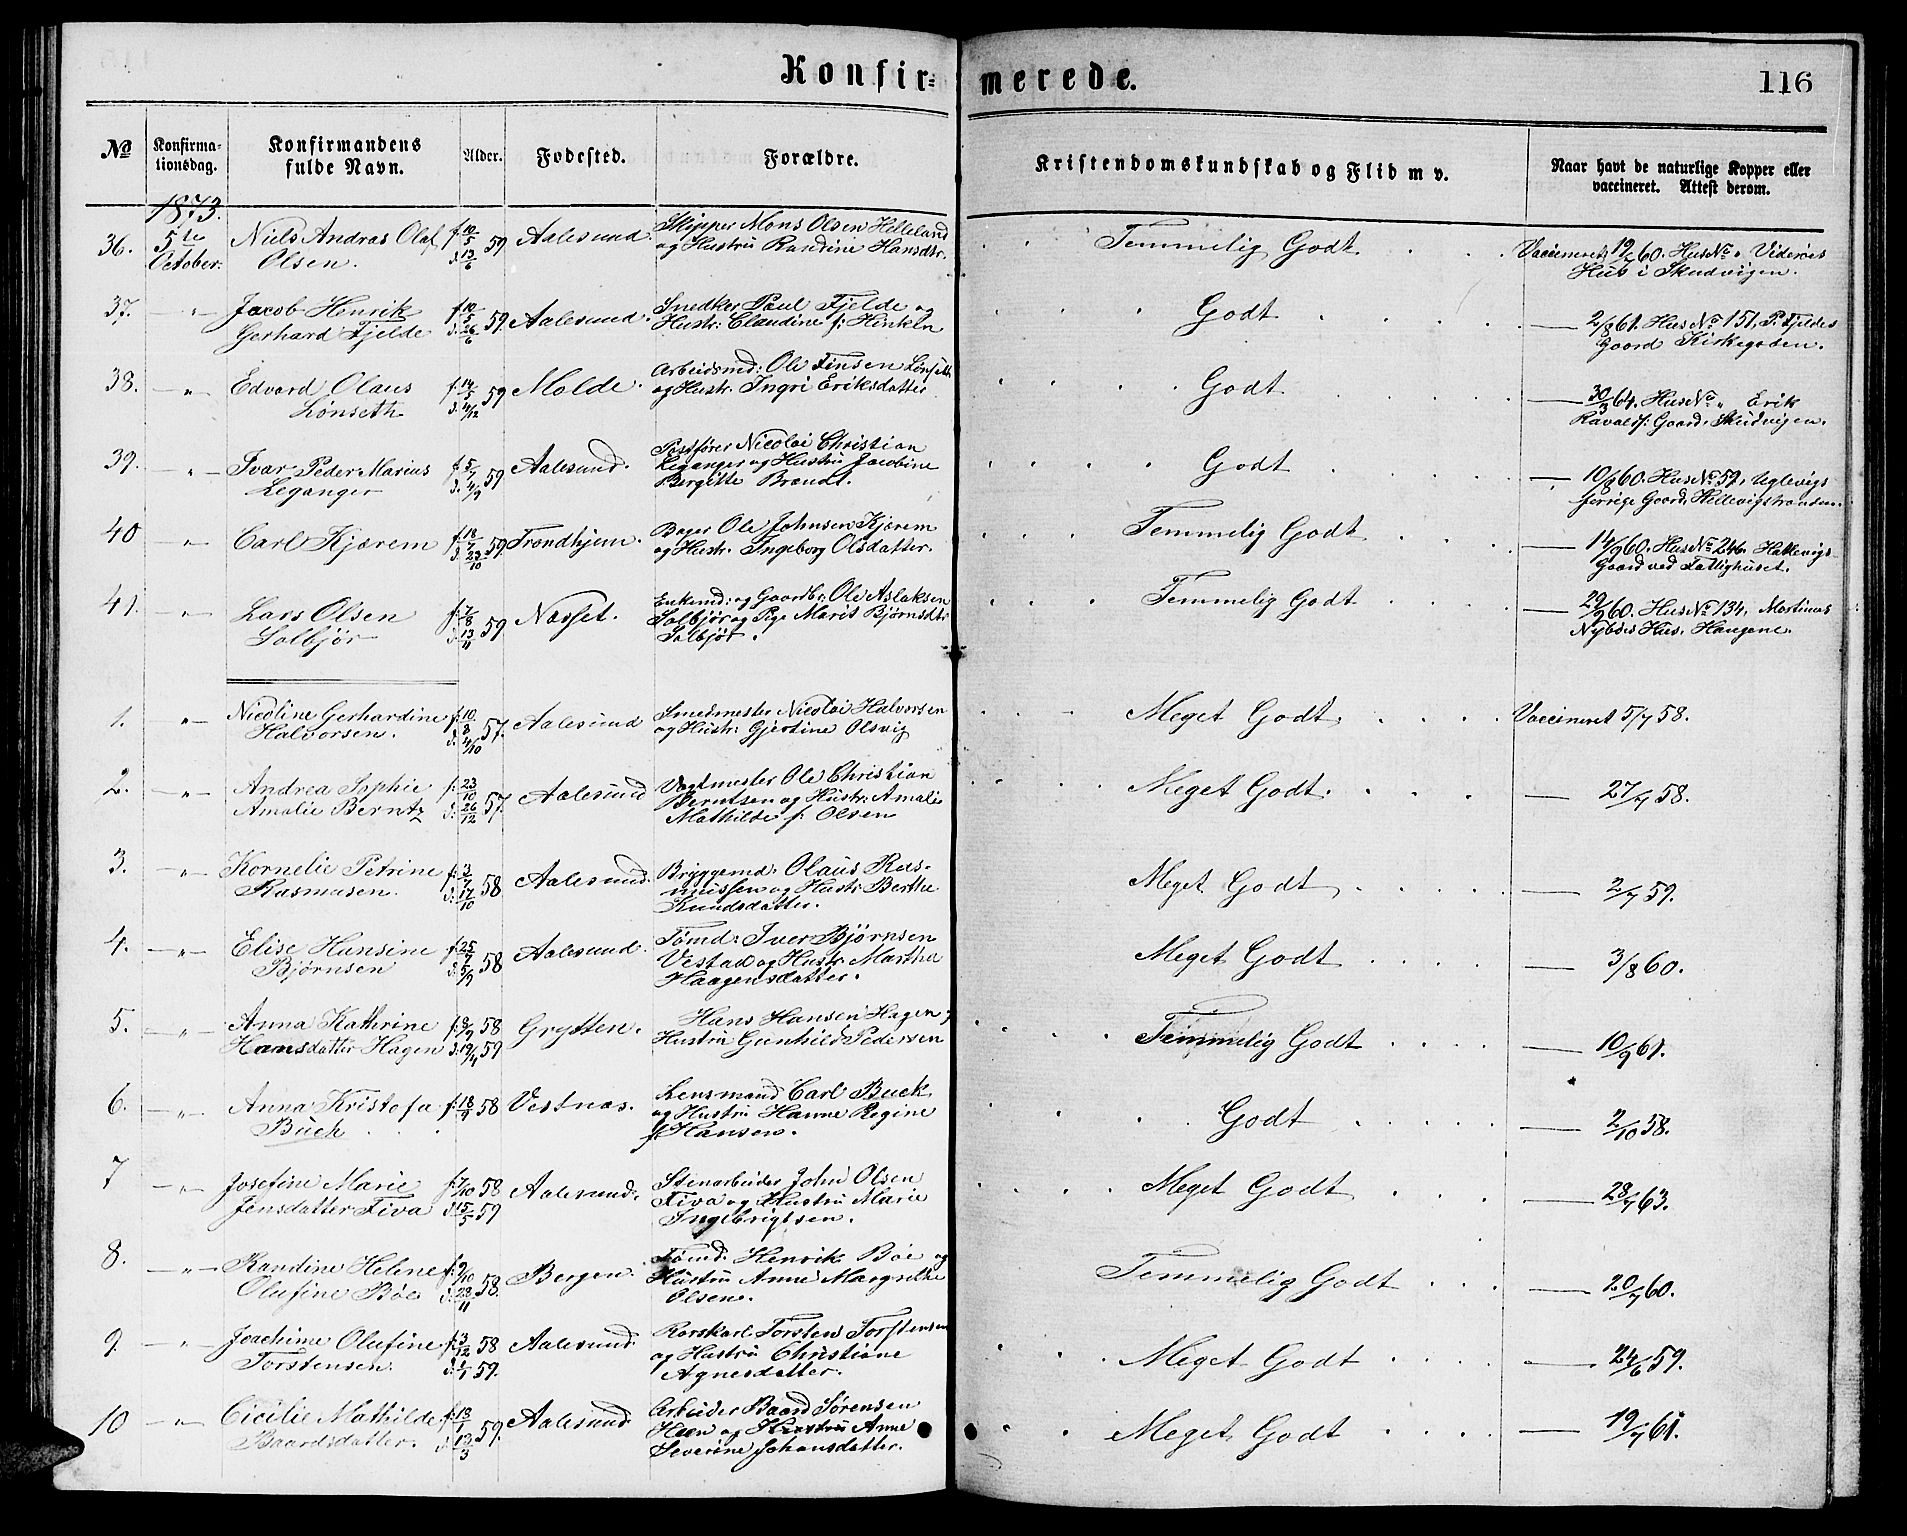 Konfir-
merede.
116
No
Konfirma-
tionsdag.
Konfirmandens
fulde Navn.
Alder.
Fødested.
Forældre.
Kristendomskundskab og Flid m v.
Naar havt de naturlige Kopper eller
vaccineret. Attest derom.
1873.
36. 5te October. Niels Andras Olaf f. 10/5 59 Aalesund. Skipper Mons Olsen Helleland Temmelig Godt Vaccineret 19/ 60. HusNo „
Olsen. d. 13/6 og Hustru Randine Hansdtr. Hus i Skudvigen.
37. „ Jacob Henrik f. 10/5 59. Aalesund. Snedker Paul Fjelde og Godt 2/8 61. HusNo 151, P. Fjeldes
Gerhard Fjelde d. 26/6 Hustr: Claudine f: Hinkeln Gaard Kirkegaden.
38. „ Edvard Olaus f. 14/5 59 Molde. Arbeidsmd: Ole Finsen Lønseth Godt 30/3 64. HusNo „ Erik
Lønseth d. 4/12 og Hustr. Ingri Eriksdatter Ravalds: Gaard, Skudvigen.
39. „ Ivar Peder Marius f. 5/7 59 Aalesund. Postfører Nicolai Christian Godt 10/8 60. HusNo 59, Uglevigs
Leganger d. 4/9 Leganger og Hustru Jacobine
Bergitte Brandt. forrige Gaard,
40 „ Carl Kjærem f. 18/7 59. Trondhjem. Bager Ole Johnsen Kjærem Temmelig Godt 14/9 60. HusNo 246. Hatlevigs
d. 23/10 og Hustr. Ingeborg Olsdatter. Gaard ved Fattighuset.
41. „ Lars Olsen f. 7/8 59 Nasset. Enkemd: og Gaardb: Ole Aslaksen Temmelig Godt 29/9 60. HusNo 134, Martinus
Solbjør d. 13/11 Solbjør og Pige Marit Bjørnsdtr Nybøes Hus, Haugene.
Solbjør.
1. „ Nicoline Gerhardine f. 10/8 57. Aalesund Smedmester Nicolai Halvorsen Meget Godt Vaccineret 5/7 58.
Halvorsen. d. 4/10 og Hustr: Gjertine Olsvig
2. „ Andrea Sophie f. 23/10 57. Aalesund Vagtmester Ole Christian Meget Godt. 27/7 58.
Amalie Berntz d. 26/12 Berntsen og Hustr: Amalie
Mathilde f: Olsen
3. „ Kornelie Petrine f. 3/7 58 Aalesund. Bryggemd. Olaus Ras- Meget Godt 2/7 59.
Rasmusen. d. 17/10 mussen og Hustr. Berthe
Knudsdatter.
4. „ Elise Hansine f. 25/7 58 Aalesund. Tømd: Iver Bjørnsen Meget Godt 3/8 60.
Bjørnsen d. 5/9 Vestad og Hustr. Martha
Haagensdatter.
5. „ Anna Kathrine f. 8/9 58 Grytten. Hans Hansen Hagen og Temmelig Godt 10/9 61.
Hansdatter Hagen d. 19/4 59 Hustru Gunhild Pedersen
6. „ Anna Kristofa f. 18/9 58 Vestnas. Lensmand Carl Buck Godt 2/10 58.
Buck og Hustru Hanne Regine
f. Hansen.
7 „ Josefine Marie f. 7/10 58 Aalesund. Stenarbeider John Olsen Meget Godt 28/7 63.
Jensdatter Fiva d. 15/5 59 Fiva og Hustru Marie
Ingebrigtsen.
8. „ Randine Helene f. 9/10 58. Bergen. Tømd. Henrik Bøe og Temmelig Godt 20/7 60.
Olufine Bøe d. 28/11 Hustru Anne Margrethe
Olsen.
9. „ Joachime Olufine f. 3/12 58 Aalesund. Rorskarl Torsten Torstensen Meget Godt 24/6 59.
Torstensen. d. 1/1 59. og Hustru Christiane
Agnesdatter.
10 „ Cicilie Mathilde f. 13/1 59. Aalesund. Arbeider Baard Sørensen Meget Godt 19/7 61.
Baardsdatter. d. 13/3 Huen og Hustru Anne
Severine Johansdatter.